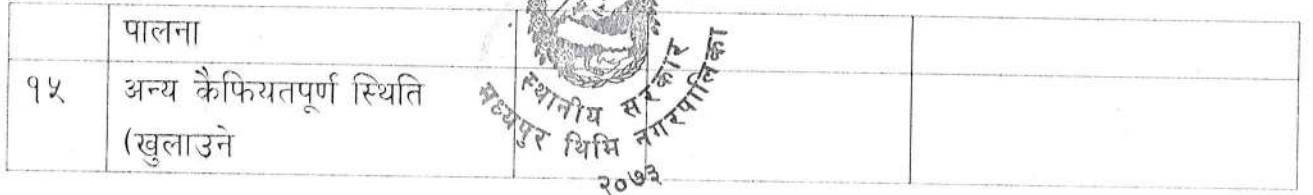 पालना
१५ अन्य कैफियतपूर्ण स्थिति
(खुलाउने
स्थानीय सरकार
मध्यपुर थिमि नगरपालिका
२०७३